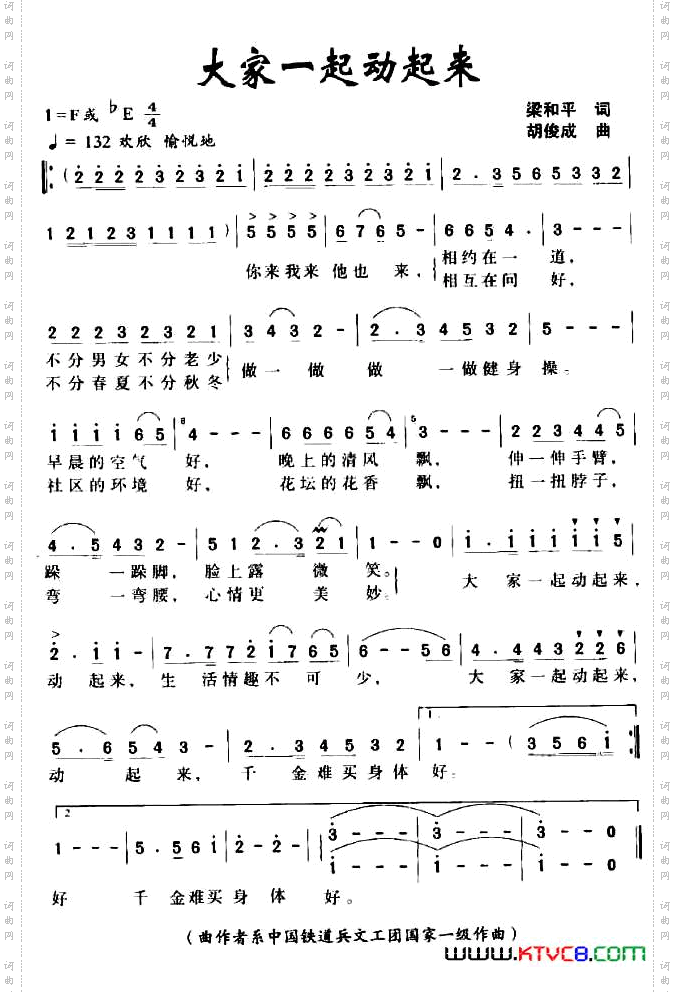 大家一起动起来
1=F或♭E 4/4
梁和平 词
♩=132 欢欣 愉悦地
胡俊成 曲
𝄆 (2 2 2 2 3 2 3 2 1 | 2 2 2 2 3 2 3 2 1 | 2 . 3 5 6 5 3 3 2 |
1 2 1 2 3 1 1 1 1) | 5 5 5 5 | 6 7 6 5 - | 6 6 5 4 . | 3 - - - |
你来我来 他也 来, 相约在一 道,
相互在问 好,
2 2 2 2 3 2 3 2 1 | 3 4 3 2 - | 2 . 3 4 5 3 2 | 5 - - - |
不分男女不分老少 做一 做 做 一做健身 操。
不分春夏不分秋冬
i i i i 6 5 | 4 - - - | 6 6 6 6 5 4 | 3 - - - | 2 2 3 4 4 5 |
早晨的空气 好, 晚上的清风 飘, 伸一伸手臂,
社区的环境 好, 花坛的花香 飘, 扭一扭脖子,
4 . 5 4 3 2 - | 5 1 2 . 3 2 1 | 1 - - 0 | i . i i i i 5 |
跺 一跺脚, 脸上露 微 笑。 大 家一起动起来,
弯 一弯腰, 心情更 美 妙。
2 . i i - | 7 . 7 7 2 1 7 6 5 | 6 - - 5 6 | 4 . 4 4 3 2 2 6 |
动 起来, 生 活情趣不 可 少, 大 家一起动起来,
5 . 6 5 4 3 - | 2 . 3 4 5 3 2 | 1. 1 - - ( 3 5 6 i 𝄇
动 起 来, 千 金难买身体 好。
2 1 - - - | 5 . 5 6 i | 2 - 2 - | 3 - - - | 3 - - - | 3 - - 0 ‖
i - - - | i - - - | i - - 0
好 千 金难买身 体 好。
(曲作者系中国铁道兵文工团国家一级作曲)
www.KTVC8.com
词曲网